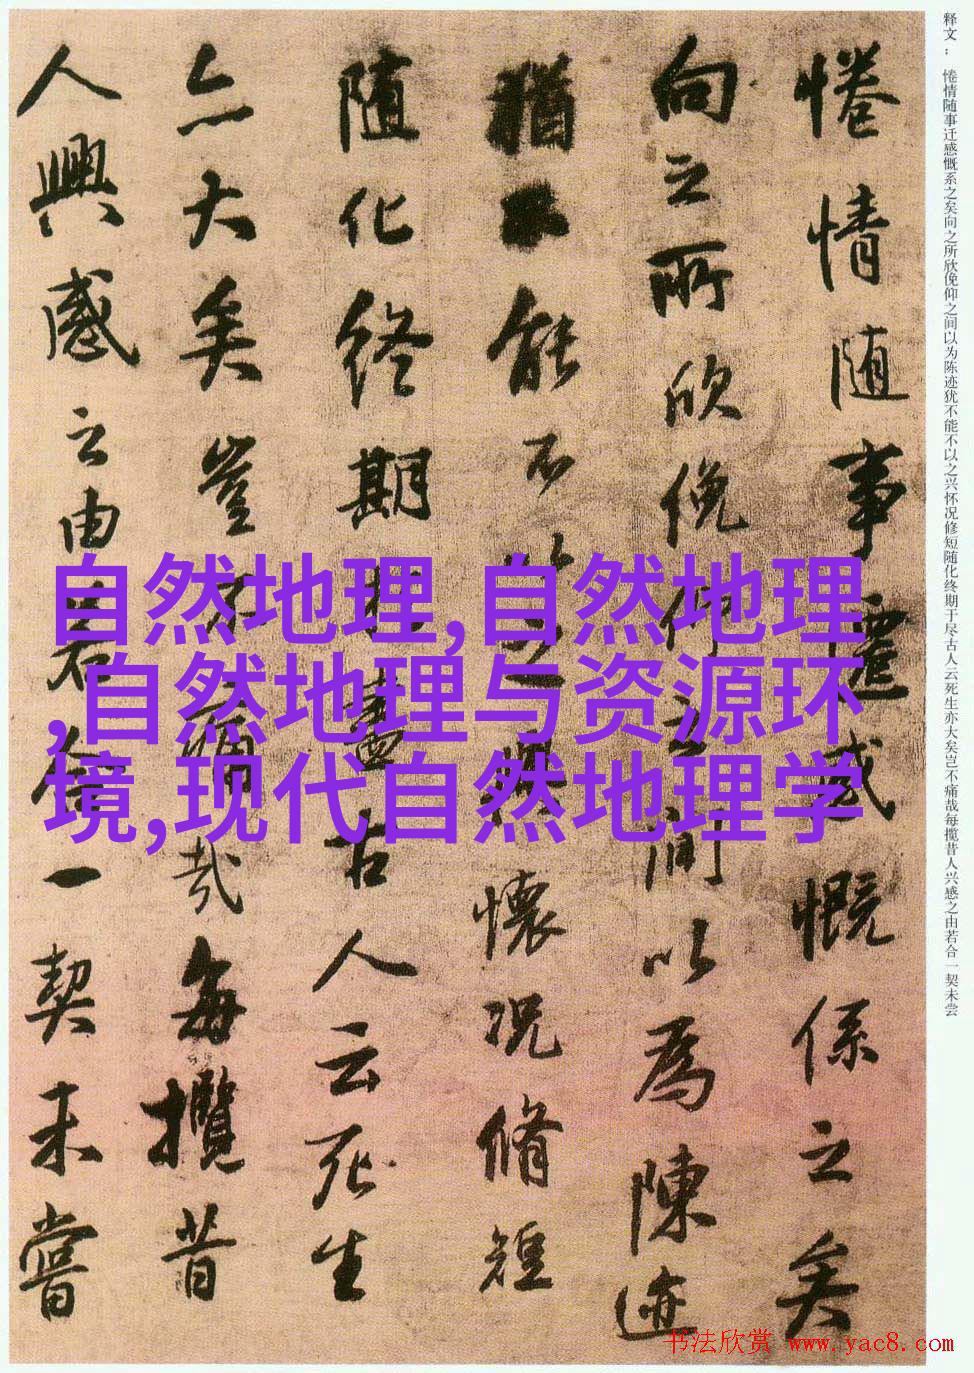 释文： 惓情随事迁感慨系之矣向之所欣俛仰之间以为陈迹犹不能不以之兴怀况修短随化终期于尽古人云死生亦大矣岂不痛哉每揽昔人兴感之由若合一契未尝
惓情随事遷感慨係之矣
向之所欣俛仰之間以為陳迹
猶不能不以之興懷况脩短
随化終期於盡古人云死生
亦大矣豈不痛哉每攬昔
人興感之由若合一契未嘗
自然地理,自然地理
,自然地理与资源环
境,现代自然地理学
书法欣赏 www.yac8.com